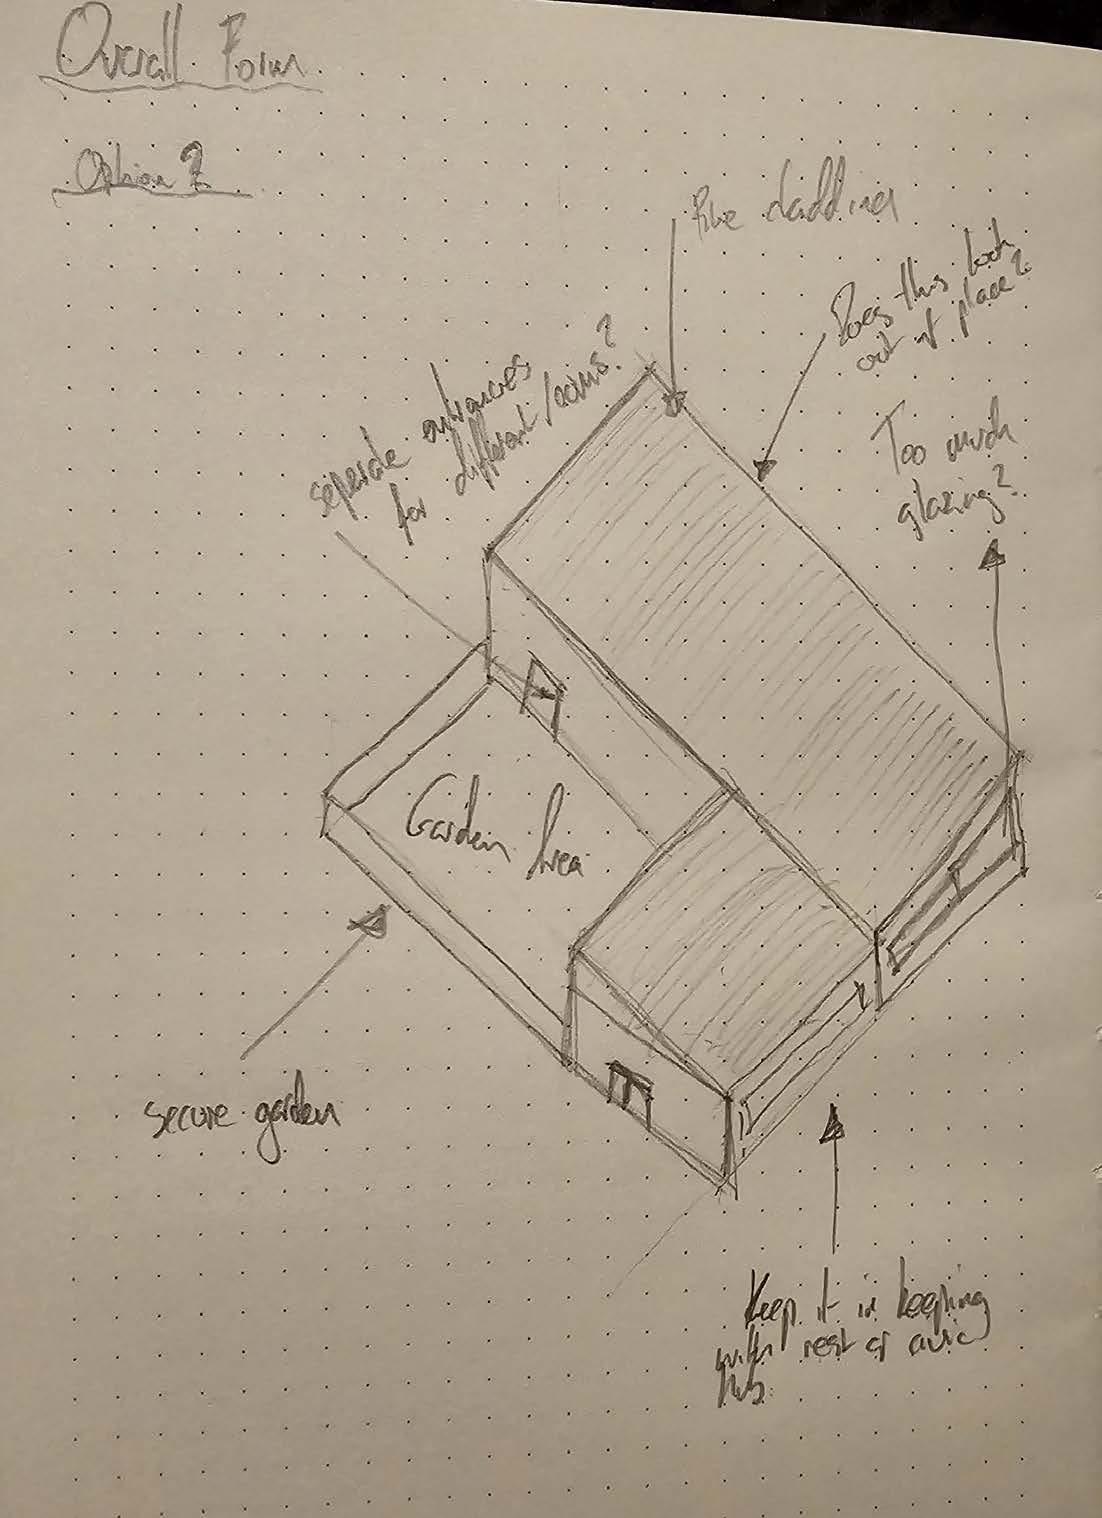 Overall Form
Option 2
Pine cladding
Does this look
out of place?
seperate entrances
for different rooms?
Too much
glazing?
Garden Area
secure garden
Keep it in keeping
with rest of civic
hub.